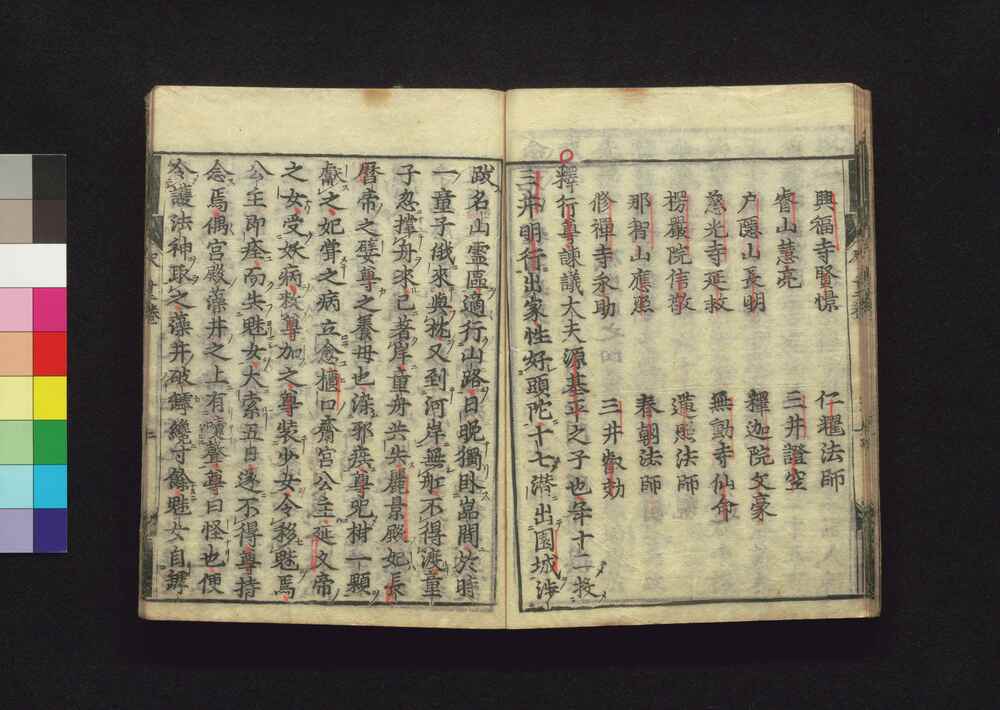 興福寺賢憬 仁耀法師
睿山慧亮 三井證空
戶隱山長明 釋迦院文豪
慈光寺延救 無動寺仙命
楞嚴院信敬 蓮照法師
那智山應照 春朝法師
修禪寺永助 三井叡効
釋行尊諫議大夫源基平之子也年十二投
三井明行出家性好頭陀十七潛出園城涉
跋名山靈區適行山路日晚獨臥嵓間於時
一童子俄來與枕又到河岸無舡不得渡童
子忽撑舟來已著岸童舟共失麗景殿妃長
曆帝之嬖尊之養母也染邪疾尊呪柑一顆
獻之妃甞之病立愈樻口齋宮公主延久帝
之女受妖病救尊加之尊裝少女令移魅焉
公主即痊而失魅女大索五日遂不得尊持
念焉偶宮殿藻井之上有嘖聲尊曰怪也便
令護法神取之藻井破罅纔寸餘魅女自罅